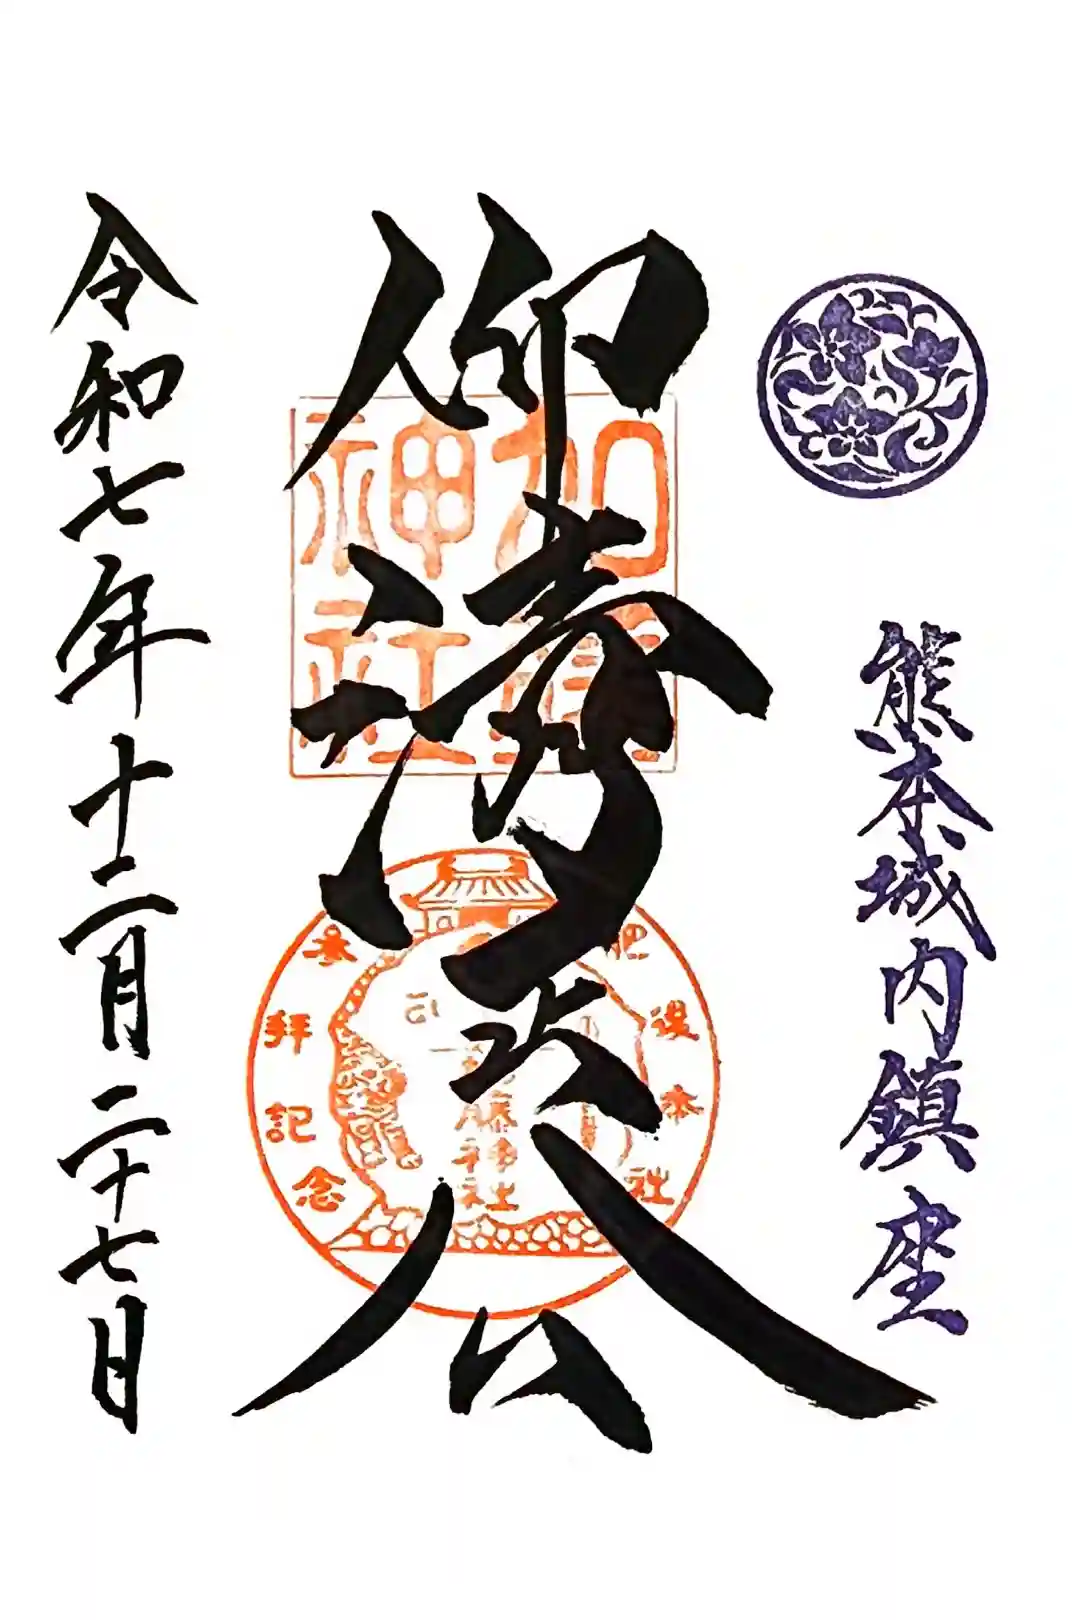 熊本城内鎮座
仰清正公
加藤
神社
肥後本社
參拜記念
令和七年十二月二十七日